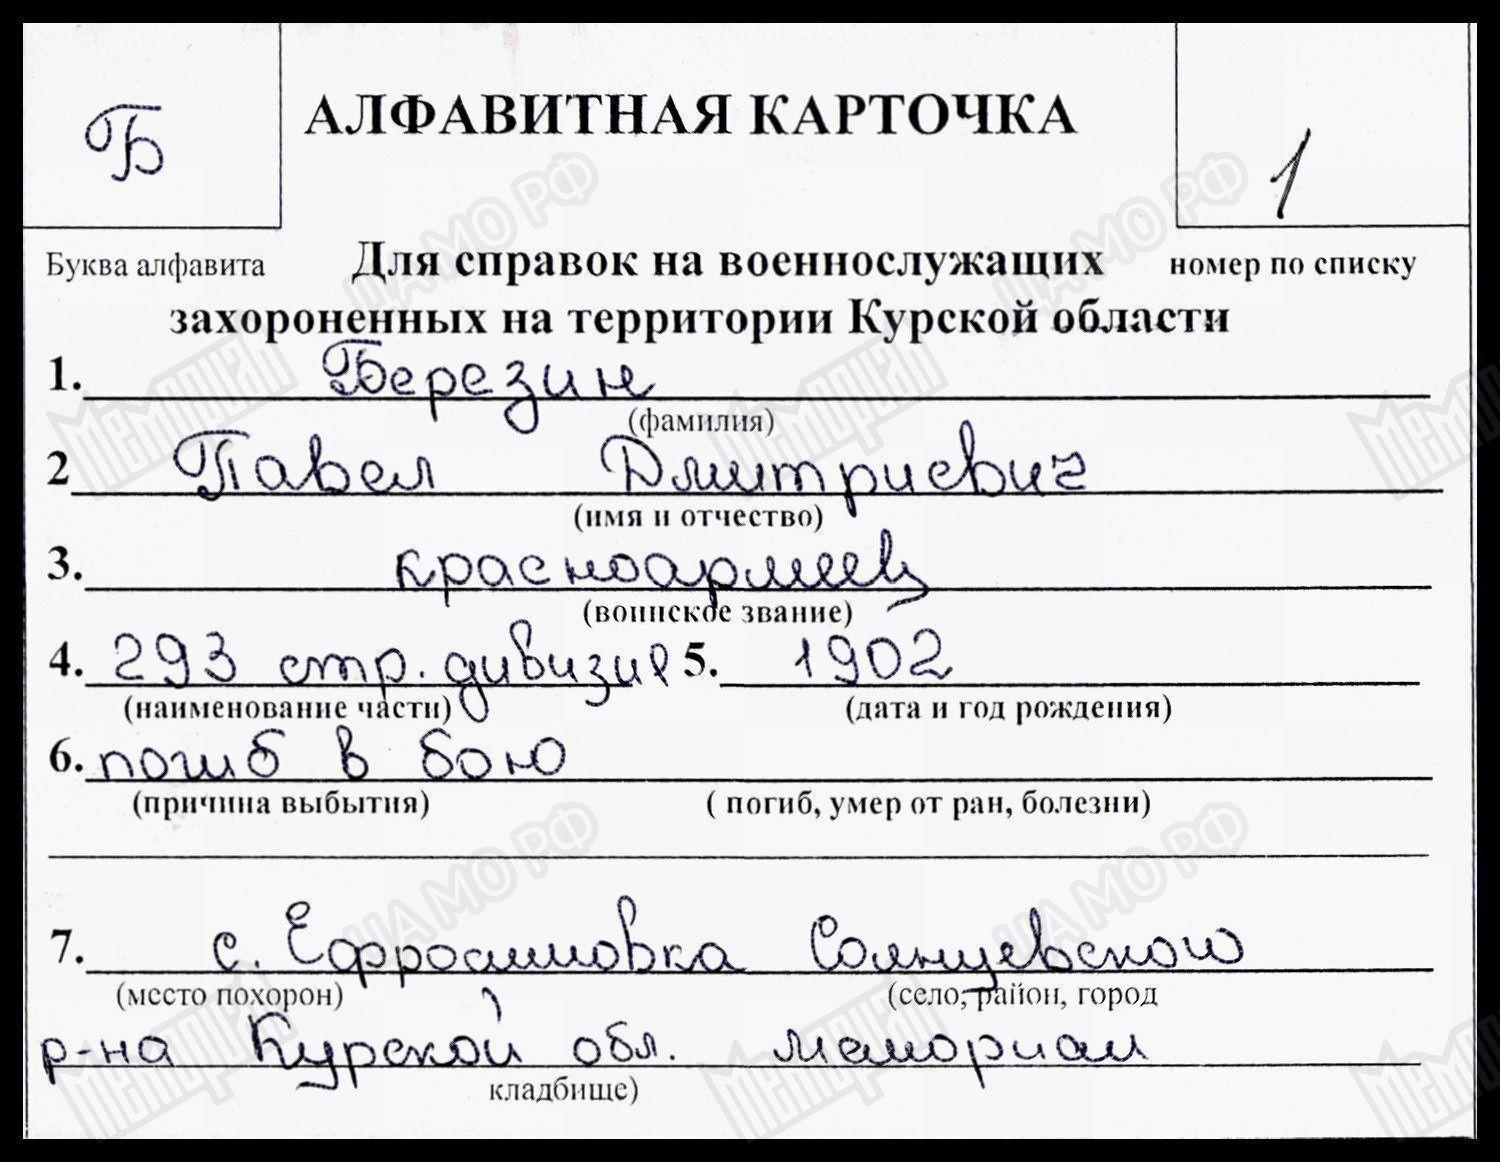 Б
АЛФАВИТНАЯ КАРТОЧКА
1
Буква алфавита
Для справок на военнослужащих
номер по списку
захороненных на территории Курской области
1. Березин
(фамилия)
2 Павел Дмитриевич
(имя и отчество)
3. красноармеец
(воинское звание)
4. 293 стр. дивизия 5. 1902
(наименование части) (дата и год рождения)
6. погиб в бою
(причина выбытия) ( погиб, умер от ран, болезни)
7. с. Ефросимовка Солнцевского
(место похорон) (село, район, город
р-на Курской обл. мемориал
кладбище)
ЦАМО РФ
Мемориал